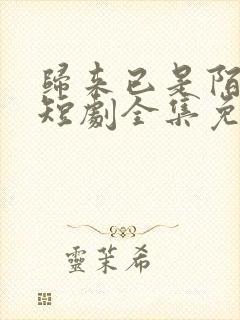 歸来已是陌
短劇全集免
靈茉希